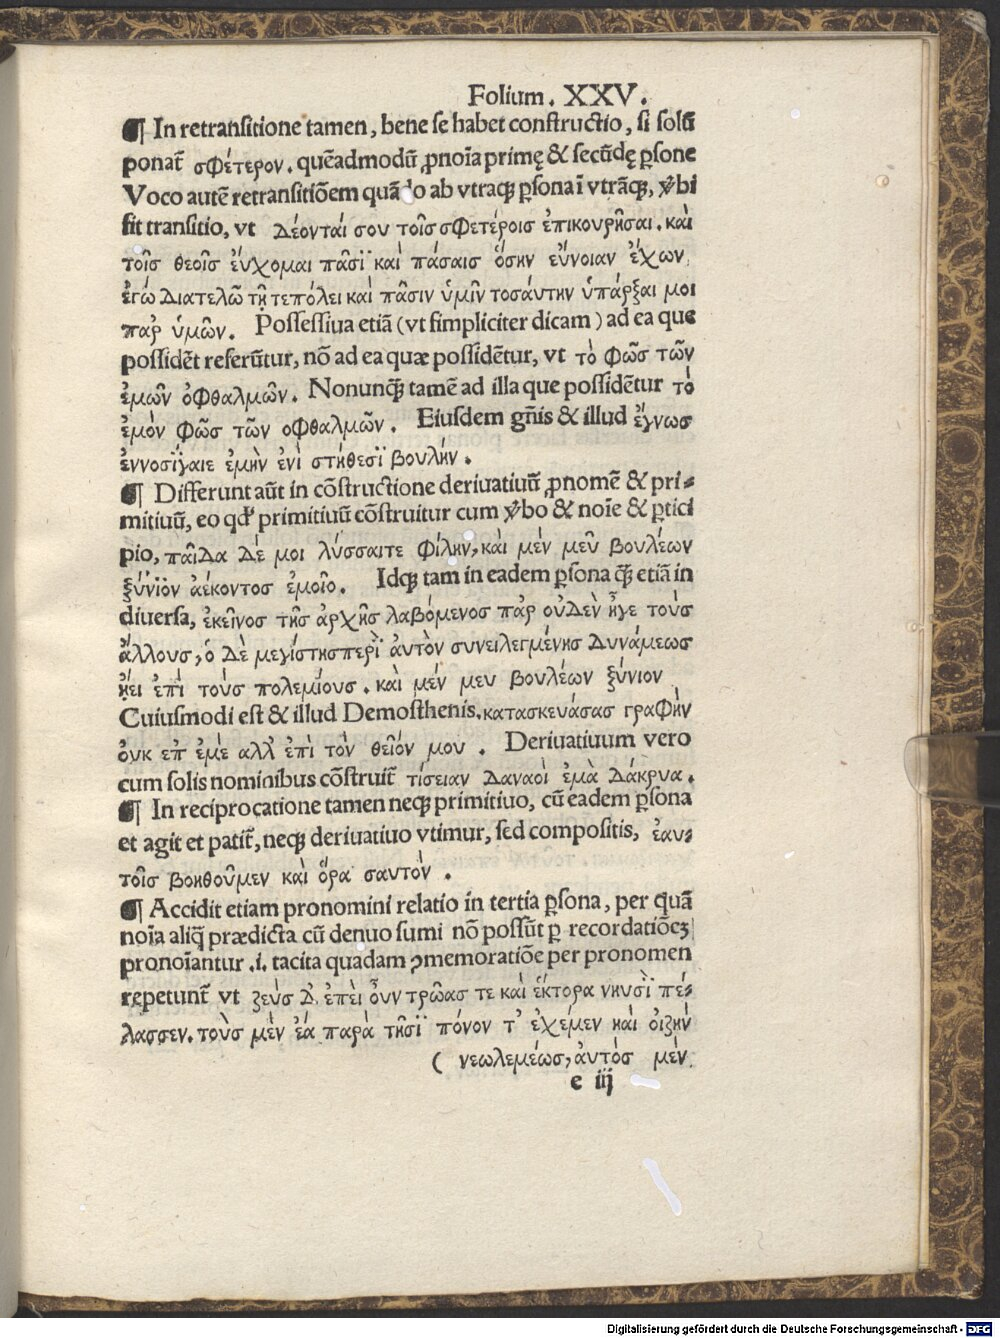 Folium. XXV.
¶ In retransitione tamen, bene se habet constructio, si solũ
ponat᷑ σφέτερον. quẽadmodũ ꝓnoĩa primę & secũdę ꝑsone
Voco autẽ retransitiõem quãdo ab vtraqꝫ ꝑsona ĩ vtrãqꝫ, ṽbi
fit transitio, vt δέονταί σου τοῖς σφετέροις ἐπικουρῆσαι. καὶ
τοῖς θεοῖς ἔυχομαι πᾶσϊ καὶ πάσαις ὅσην εὔνοιαν ἔχων
ἐγώ διατελῶ τῇ τεπόλει καὶ πᾶσιν ὑμῖν τοσάυτην ὑπάρξαι μοι
παρ ὑμῶν. Possessiua etiã (vt simpliciter dicam) ad ea que
possidẽt referũtur, nõ ad ea quæ possidẽtur, vt τὸ φῶς τῶν
ἐμῶν ὀφθαλμῶν. Nonunqꝫ̃ tamẽ ad illa que possidẽtur τὸ
ἐμὸν φῶς τῶν οφθαλμῶν. Eiusdem gñis & illud ἔγνως
ἐννοσίγαιε ἐμὴν ἐνὶ στήθεσϊ βουλήν.
¶ Differunt aũt in cõstructione deriuatiuũ ꝓnomẽ & pri-
mitiuũ, eo qđ primitiuũ cõstruitur cum ṽbo & noĩe & ꝑtici
pio, παῖδα δέ μοι λύσσαιτε φίλην, καὶ μέν μεῦ βουλέων
ξύνϊον ἀέκοντος ἐμοῖο. Idqꝫ tam in eadem ꝑsona qꝫ̃ etiã in
diuersa, ἐκεῖνος τῆς ἀρχῆς λαβόμενος παρ οὐδὲν ἦγε τοὺς
ἄλλους, ὁ δὲ μεγίστης περῒ ἀυτὸν συνειλεγμένης δυνάμεως
ᾔει ἐπὶ τοὺς πολεμίους. καὶ μέν μευ βουλέων ξύνιον
Cuiusmodi est & illud Demosthenis. κατασκευάσας γραφὴν
ὀυκ επ ἐμὲ αλλ ἐπὶ τὸν θεῖόν μου. Deriuatiuum vero
cum solis nominibus cõstruit᷑ τίσειαν Δαναοὶ ἐμὰ δάκρυα.
¶ In reciprocatione tamen neqꝫ primitiuo, cũ eadem ꝑsona
et agit et patit᷑, neqꝫ deriuatiuo vtimur, sed compositis, ἑαυ-
τοῖς βοηθοῦμεν καὶ ὅρα σαυτὸν.
¶ Accidit etiam pronomini relatio in tertia ꝑsona, per quã
noĩa aliqͣ̃ prædicta cũ denuo sumi nõ possũt ꝑ recordatiõeꝫ
pronoĩantur .i. tacita quadam ꝯmemoratiõe per pronomen
repetunt᷑ vt ζεὺς δ ἐπεὶ ὀυν τρῶας τε καὶ ἕκτορα νηυσῒ πέ-
λασσεν. τοὺς μὲν ἔα παρὰ τῇσϊ πόνον τ' ἐχέμεν καὶ ὀιζὴν
( νεωλεμέως, ἀυτὸς μὲν
e iij
Digitalisierung gefördert durch die Deutsche Forschungsgemeinschaft - DFG